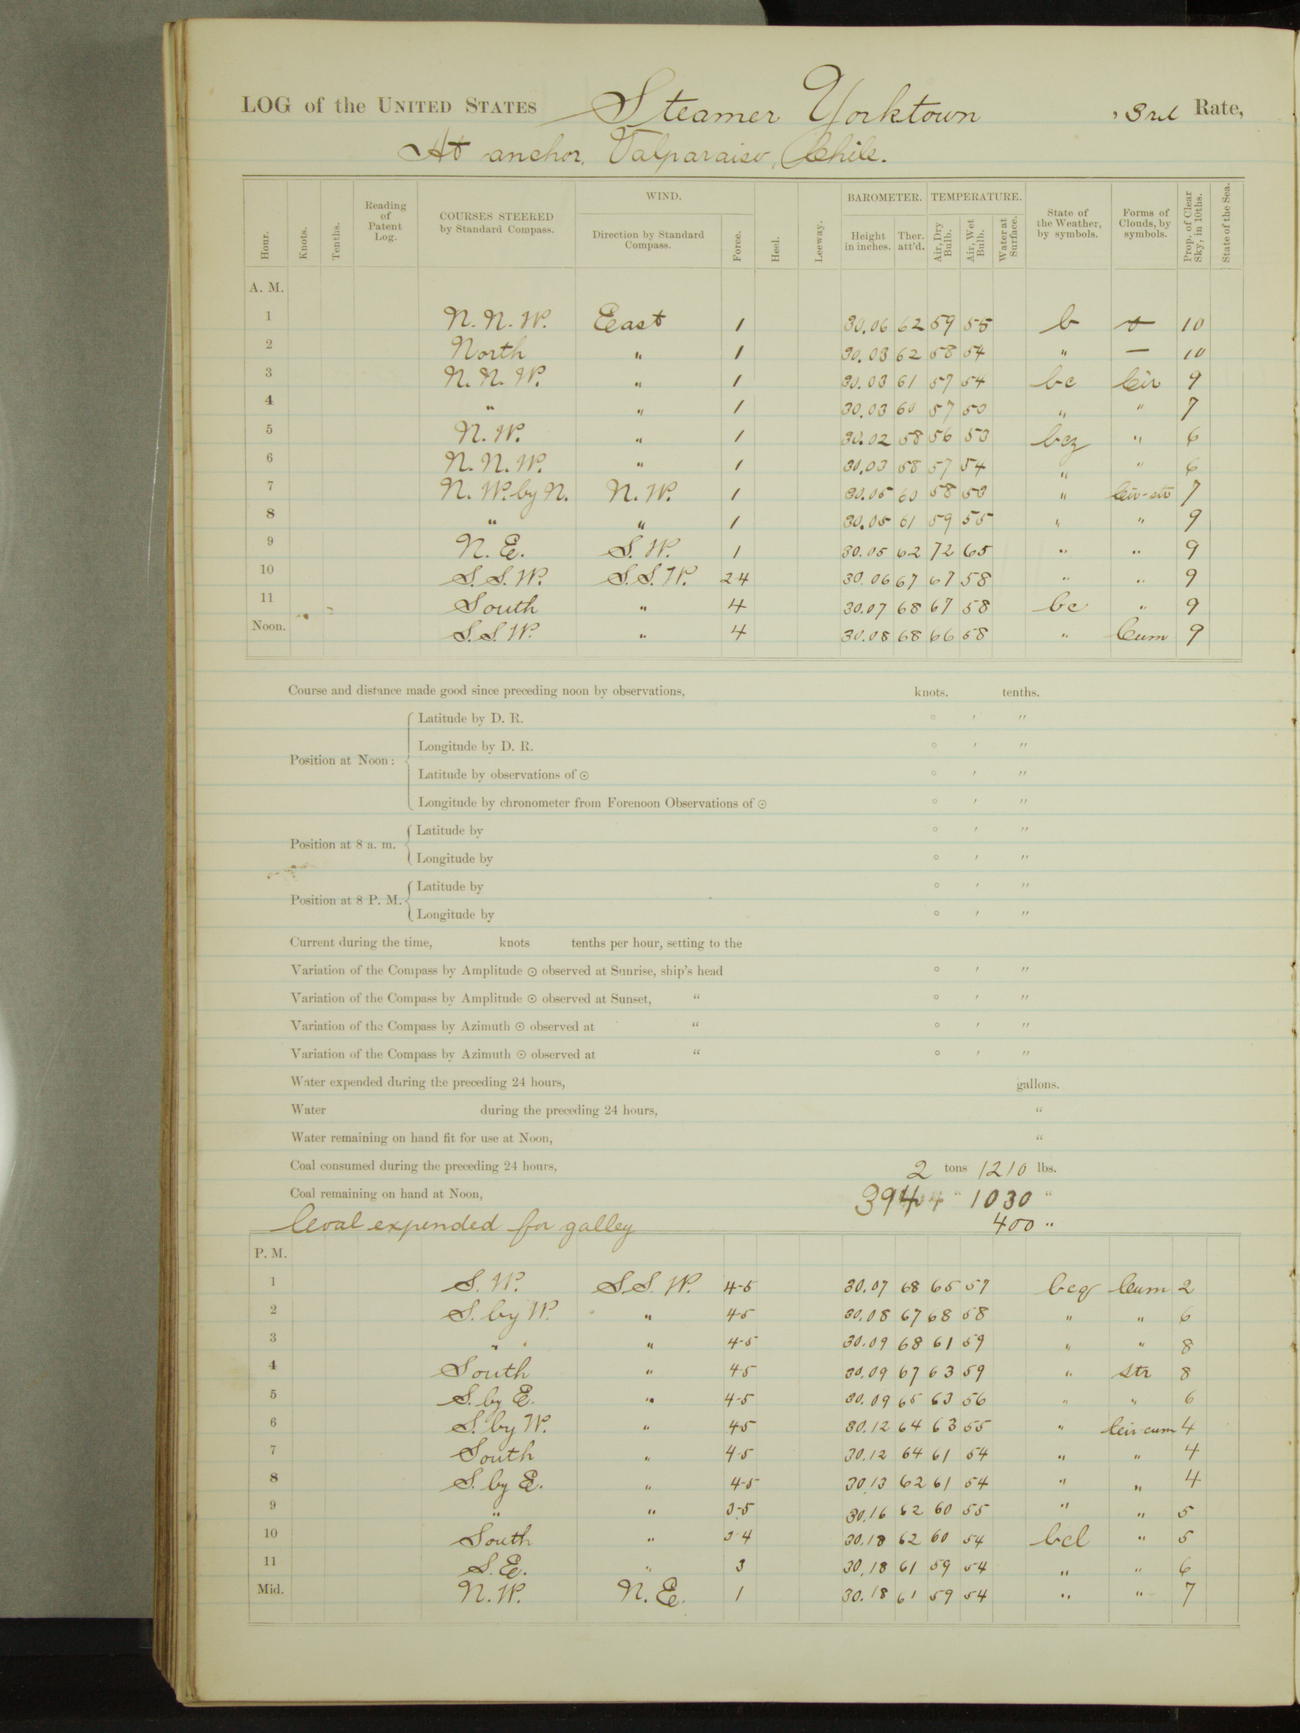 LOG of the UNITED STATES Steamer Yorktown, 3rd Rate,
At anchor, Valparaiso, Chile.
Hour. Knots. Tenths. Reading of Patent Log. COURSES STEERED by Standard Compass. WIND. Direction by Standard Compass. Force. Heel. Leeway. BAROMETER. Height in inches. Ther. att'd. TEMPERATURE. Air, Dry Bulb. Air, Wet Bulb. Water at Surface. State of the Weather, by symbols. Forms of Clouds, by symbols. Prop. of Clear Sky, in 10ths. State of the Sea.
A. M.
1 N. N. W. East 1 30.06 62 59 55 b 10
2 North " 1 30.03 62 58 54 " — 10
3 N. N. W. " 1 30.03 61 57 54 bc Cir 9
4 " " 1 30.03 60 57 53 " " 7
5 N. W. " 1 30.02 58 56 53 bcz " 6
6 N. N. W. " 1 30.03 58 57 54 " " 6
7 N. W. by N. N. W. 1 30.05 60 58 53 " Cir-str 7
8 " " 1 30.05 61 59 55 " " 9
9 N. E. S. W. 1 30.05 62 72 65 " " 9
10 S. S. W. S. S. W. 2 4 30.06 67 67 58 " " 9
11 South " 4 30.07 68 67 58 bc " 9
Noon. S. S W. " 4 30.08 68 66 58 " Cum 9
Course and distance made good since preceding noon by observations, knots. tenths.
Position at Noon:
Latitude by D. R. ° ′ ″
Longitude by D. R. ° ′ ″
Latitude by observations of ☉ ° ′ ″
Longitude by chronometer from Forenoon Observations of ☉ ° ′ ″
Position at 8 a. m.
Latitude by ° ′ ″
Longitude by ° ′ ″
Position at 8 P. M.
Latitude by ° ′ ″
Longitude by ° ′ ″
Current during the time, knots tenths per hour, setting to the
Variation of the Compass by Amplitude ☉ observed at Sunrise, ship's head ° ′ ″
Variation of the Compass by Amplitude ☉ observed at Sunset, " ° ′ ″
Variation of the Compass by Azimuth ☉ observed at " ° ′ ″
Variation of the Compass by Azimuth ☉ observed at " ° ′ ″
Water expended during the preceding 24 hours, gallons.
Water during the preceding 24 hours, "
Water remaining on hand fit for use at Noon, "
Coal consumed during the preceding 24 hours, 2 tons 1210 lbs.
Coal remaining on hand at Noon, 394 " 1030 "
Coal expended for galley 400 "
P. M.
1 S. W. S S. W. 4-5 30.07 68 65 57 bcq Cum 2
2 S. by W. " 4-5 30.08 67 68 58 " " 6
3 " " " 4-5 30.09 68 61 59 " " 8
4 South " 4 5 30.09 67 63 59 " Str 8
5 S. by E. " 4-5 30.09 65 63 56 " " 6
6 S. by W. " 4 5 30.12 64 63 55 " Cir cum 4
7 South " 4-5 30.12 64 61 54 " " 4
8 S. by E. " 4-5 30.13 62 61 54 " " 4
9 " " 3-5 30.16 62 60 55 " " 5
10 South " 3 4 30.18 62 60 54 bcl " 5
11 S. E. " 3 30.18 61 59 54 " " 6
Mid. N. W. N. E. 1 30.18 61 59 54 " " 7